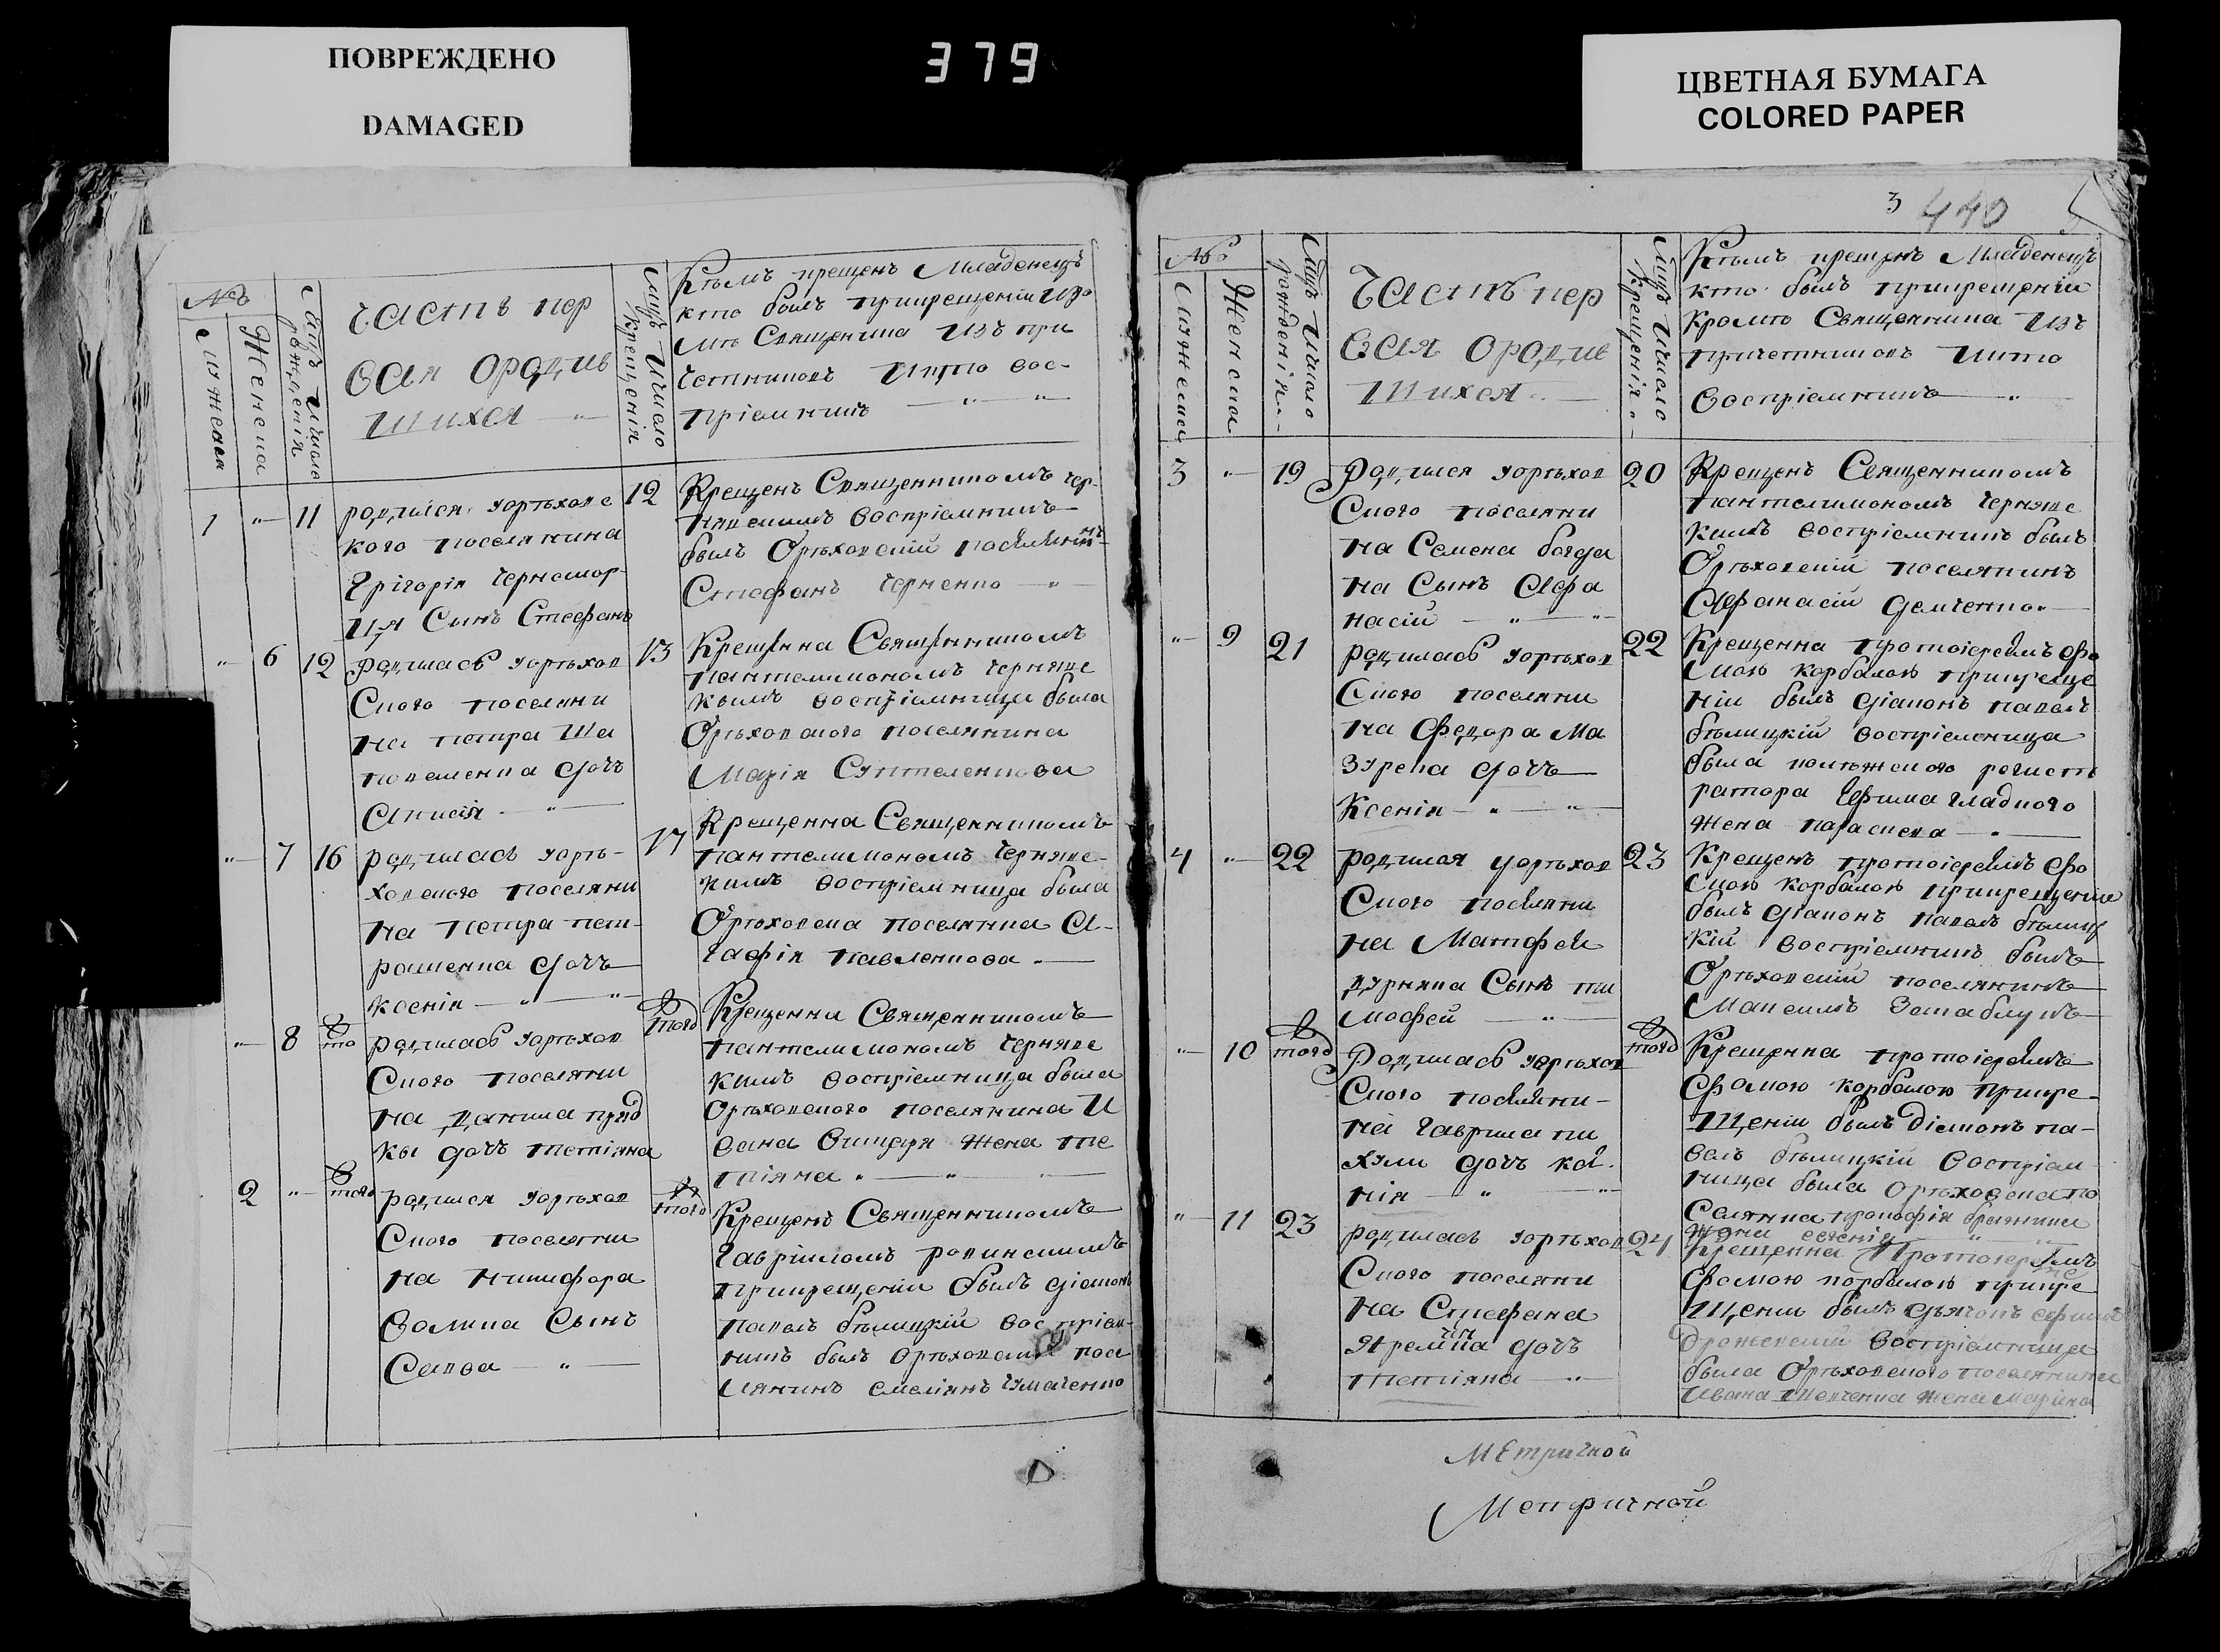 ПОВРЕЖДЕНО
DAMAGED
379
ЦВЕТНАЯ БУМАГА
COLORED PAPER
3 440
№
Мужеска
Женска
Мцъ Ичисло рожденія
Часть пер
вая ородив
шихся
Мцъ Ичисло крещенія
Кѣмъ крещенъ Младенецъ
кто былъ прикрещеніи кро
мѣ Священника Изъ при
четниковъ Икто вос-
пріемникъ
1 " 11 12
родился уорѣховс
кого поселянина
Григорія Черномор-
Сынъ Стефанъ
Крещенъ Священникомъ Чер-
нявскимъ воспріемникъ
былъ Орѣховскій поселянинъ
Стефанъ Черненко
" 6 12 13
родилась уорѣхов
ского поселяни
на петра Ша
поваленка дочь
Анисія
Крещенна Священникомъ
пантелимономъ Чернявс
кымъ воспріемница была
Орѣховского поселянина
Марія
" 7 16 17
родилась уорѣ-
ховского поселяни
на петра пет-
рашенка дочь
ксенія
Крещенна Священникомъ
пантелимономъ Чернявс-
кимъ воспріемница была
Орѣховска поселянка А-
гафія павленкова
" 8 того
родилась уорѣхов
ского поселяни
на данила пряд
кы дочь тетіяна
Крещенна Священникомъ
пантелимономъ Чернявс
кимъ воспріемница была
Орѣховского поселянина И
вана жена те
тіяна
2 " того того
родился уорѣхов
ского поселяни
на никифора
волика Сынъ
Савва
Крещенъ Священникомъ
Гавріиломъ
прикрещеніи былъ діаконъ
павелъ бѣлицкій воспріем-
никъ былъ Орѣховский посе
лянинъ емеліянъ Чумаченко
№
Мужеска
Женска
Мцъ Ичисло рожденія
Часть пер
вая ородив
шихся
Мцъ Ичисло крещенія
Кѣмъ крещенъ Младенецъ
кто былъ прикрещеніи
кромѣ Священника Изъ
причетниковъ Икто
воспріемникъ
3 " 19 20
Родился уорѣхов
ского поселяни
на Семена богда
на Сынъ Афа
насій
Крещенъ Священникомъ
пантелимономъ Чернявс
кимъ воспріемникъ былъ
Орѣховскій поселянинъ
Афанасій Демченко
" 9 21 22
родилась уорѣхов
ского поселяни
на Федора Ма
зурека дочь
Ксенія
Крещенна протоіереемъ Фо
мою корбалою прикреще
ніи былъ діаконъ павелъ
бѣлицкій воспріемница
была колѣжского регист
ратора Ефима гладкого
жена параскева
4 " 22 23
родился уорѣхов
ского поселяни
на Матфея
дурняка Сынъ ти
мофей
Крещенъ протоіереемъ Фо
мою корбалою прикрещеніи
былъ діаконъ павелъ бѣлиц
кій воспріемникъ былъ
Орѣховскій поселянинъ
Максимъ
" 10 того того
Родилась уорѣхов
ского поселяни-
на гаврила пи
хули дочь ксе
нія
Крещенна протоіереемъ
Фомою корбалою прикре
щеніи былъ діаконъ па-
велъ бѣлицкій воспріем
ница была Орѣховска по
селянка
" 11 23 24
родилась уорѣхов
ского поселяни
на Стефана
дочь
тетіяна
Крещенна Протоіереемъ
Фомою корбалою прикре
щеніи былъ
воспріемница
была Орѣховского поселянина
Ивана Шевченка жена Марина
Метричной
Метричной